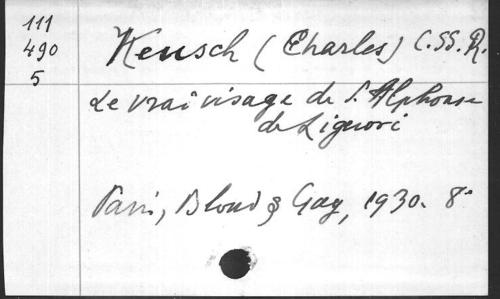 111
490
5
Keusch (Charles) C.SS.R.
Le vrai visage de S. Alphonse
de Liguori
Paris, Bloud & Gay, 1930. 8°